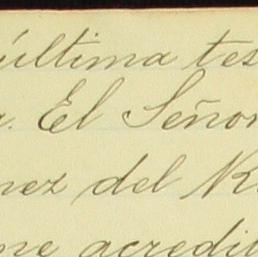 última tes
a. El Señor
nez del R
me acredi